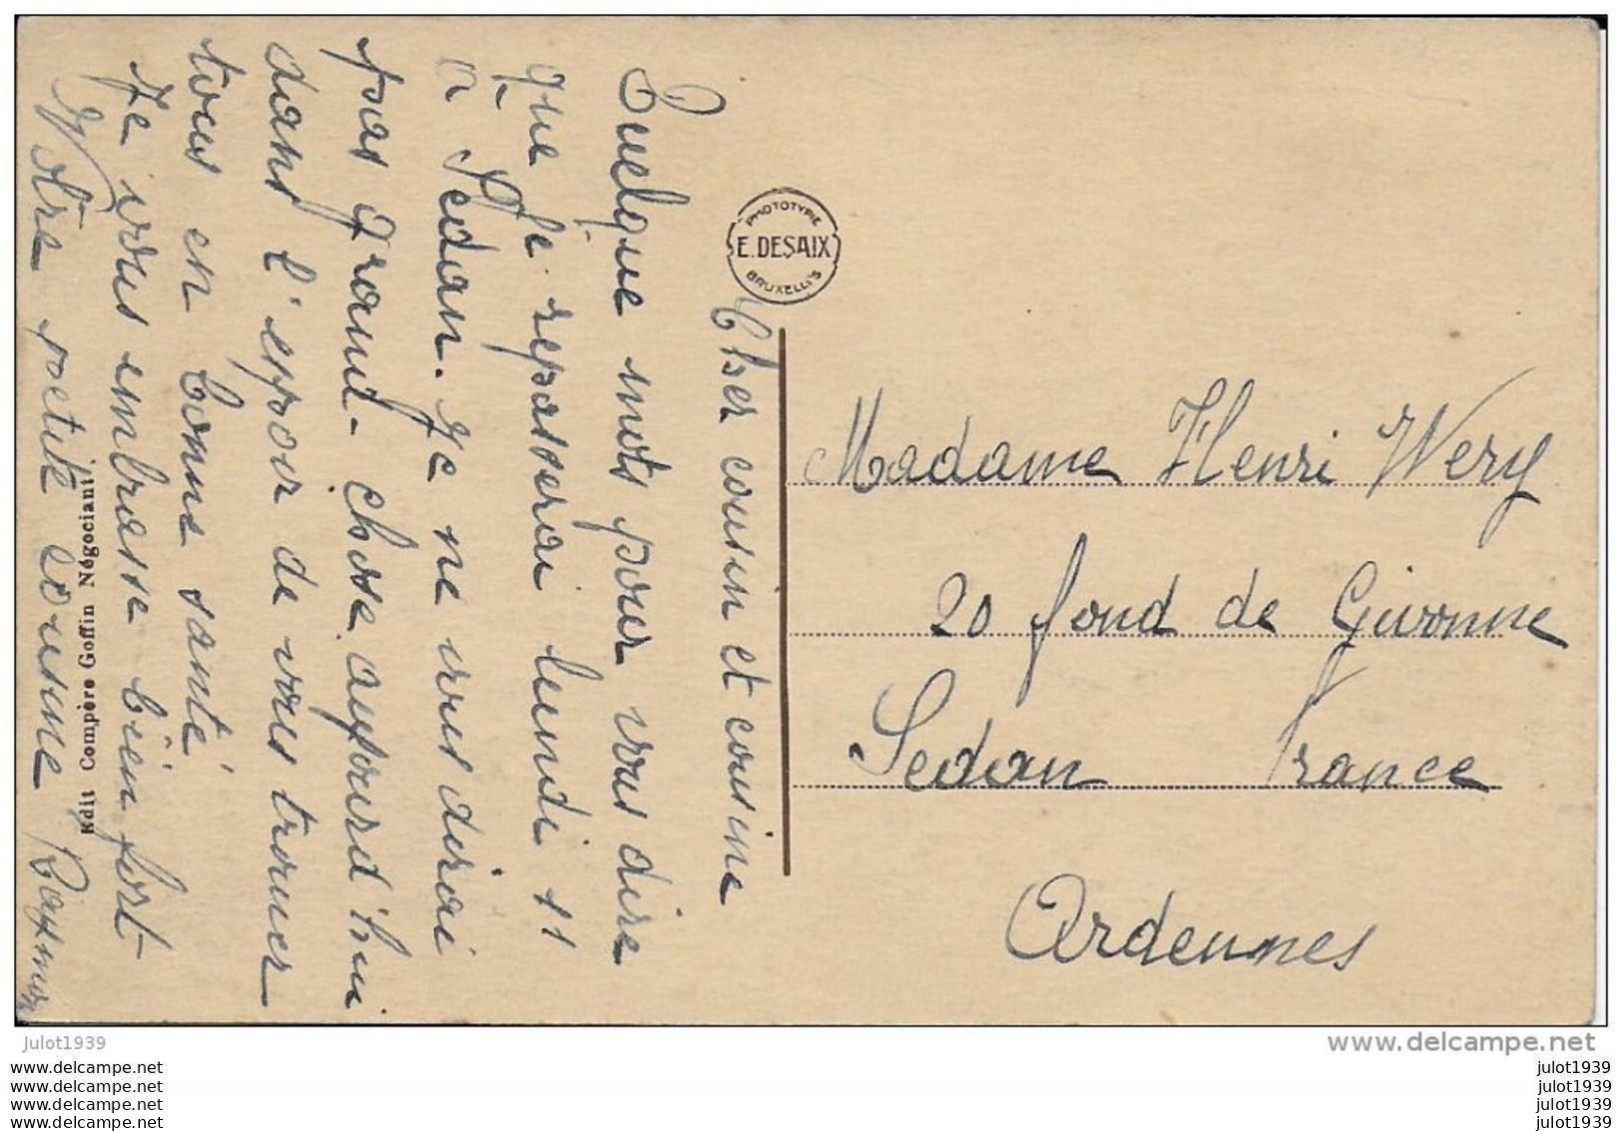 Cher cousin et cousine
Quelque mots pour vous dire
que je repasserai lundi 11
à Sedan. Je ne vous dirai
pas grand-chose aujourd'hui
dans l'espoir de vous trouver
tous en bonne santé
Je vous embrasse bien fort
Votre petite cousine
Edit Compère Goffin Négociant
PHOTOTYPIE
E. DESAIX
BRUXELLES
Madame Henri Wery
20 fond de Givonne
Sedan France
Ardennes
julot1939
www.delcampe.net
www.delcampe.net
www.delcampe.net
www.delcampe.net
www.delcampe.net
julot1939
julot1939
julot1939
julot1939